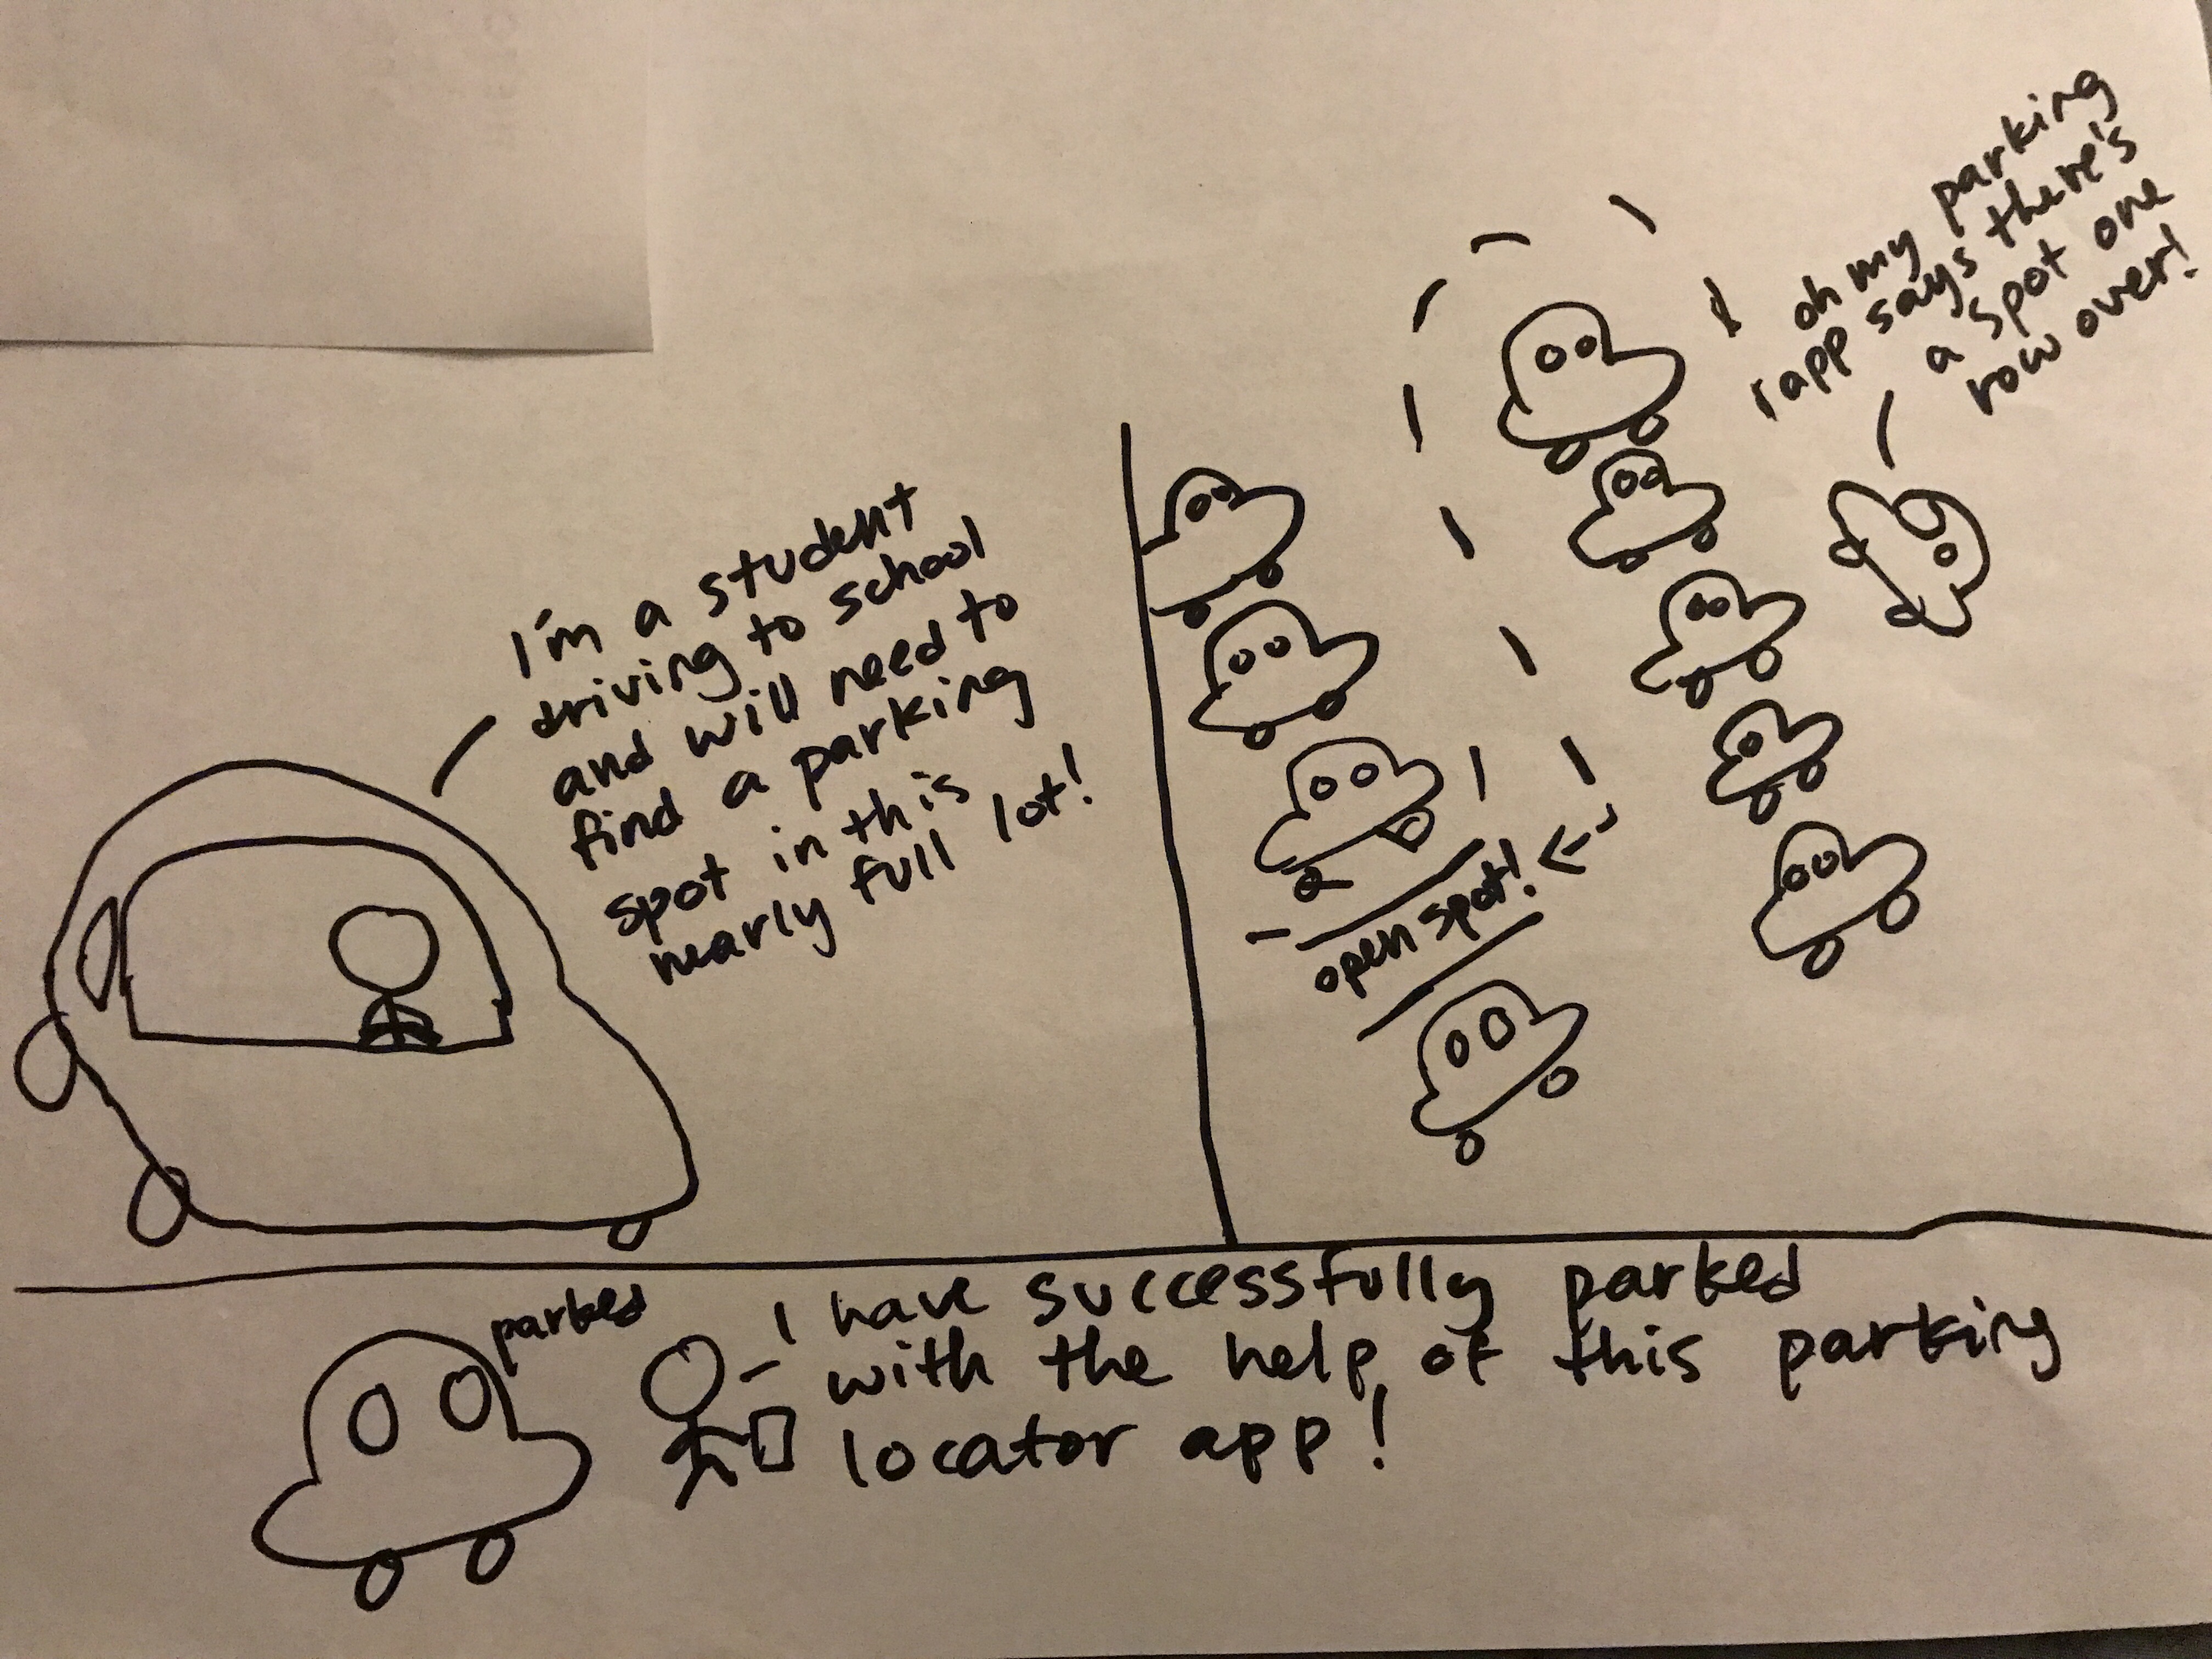 I'm a student
driving to school
and will need to
find a parking
spot in this
nearly full lot!
oh my parking
app says there's
a spot one
row over!
open spot!
parked
I have successfully parked
with the help of this parking
locator app!